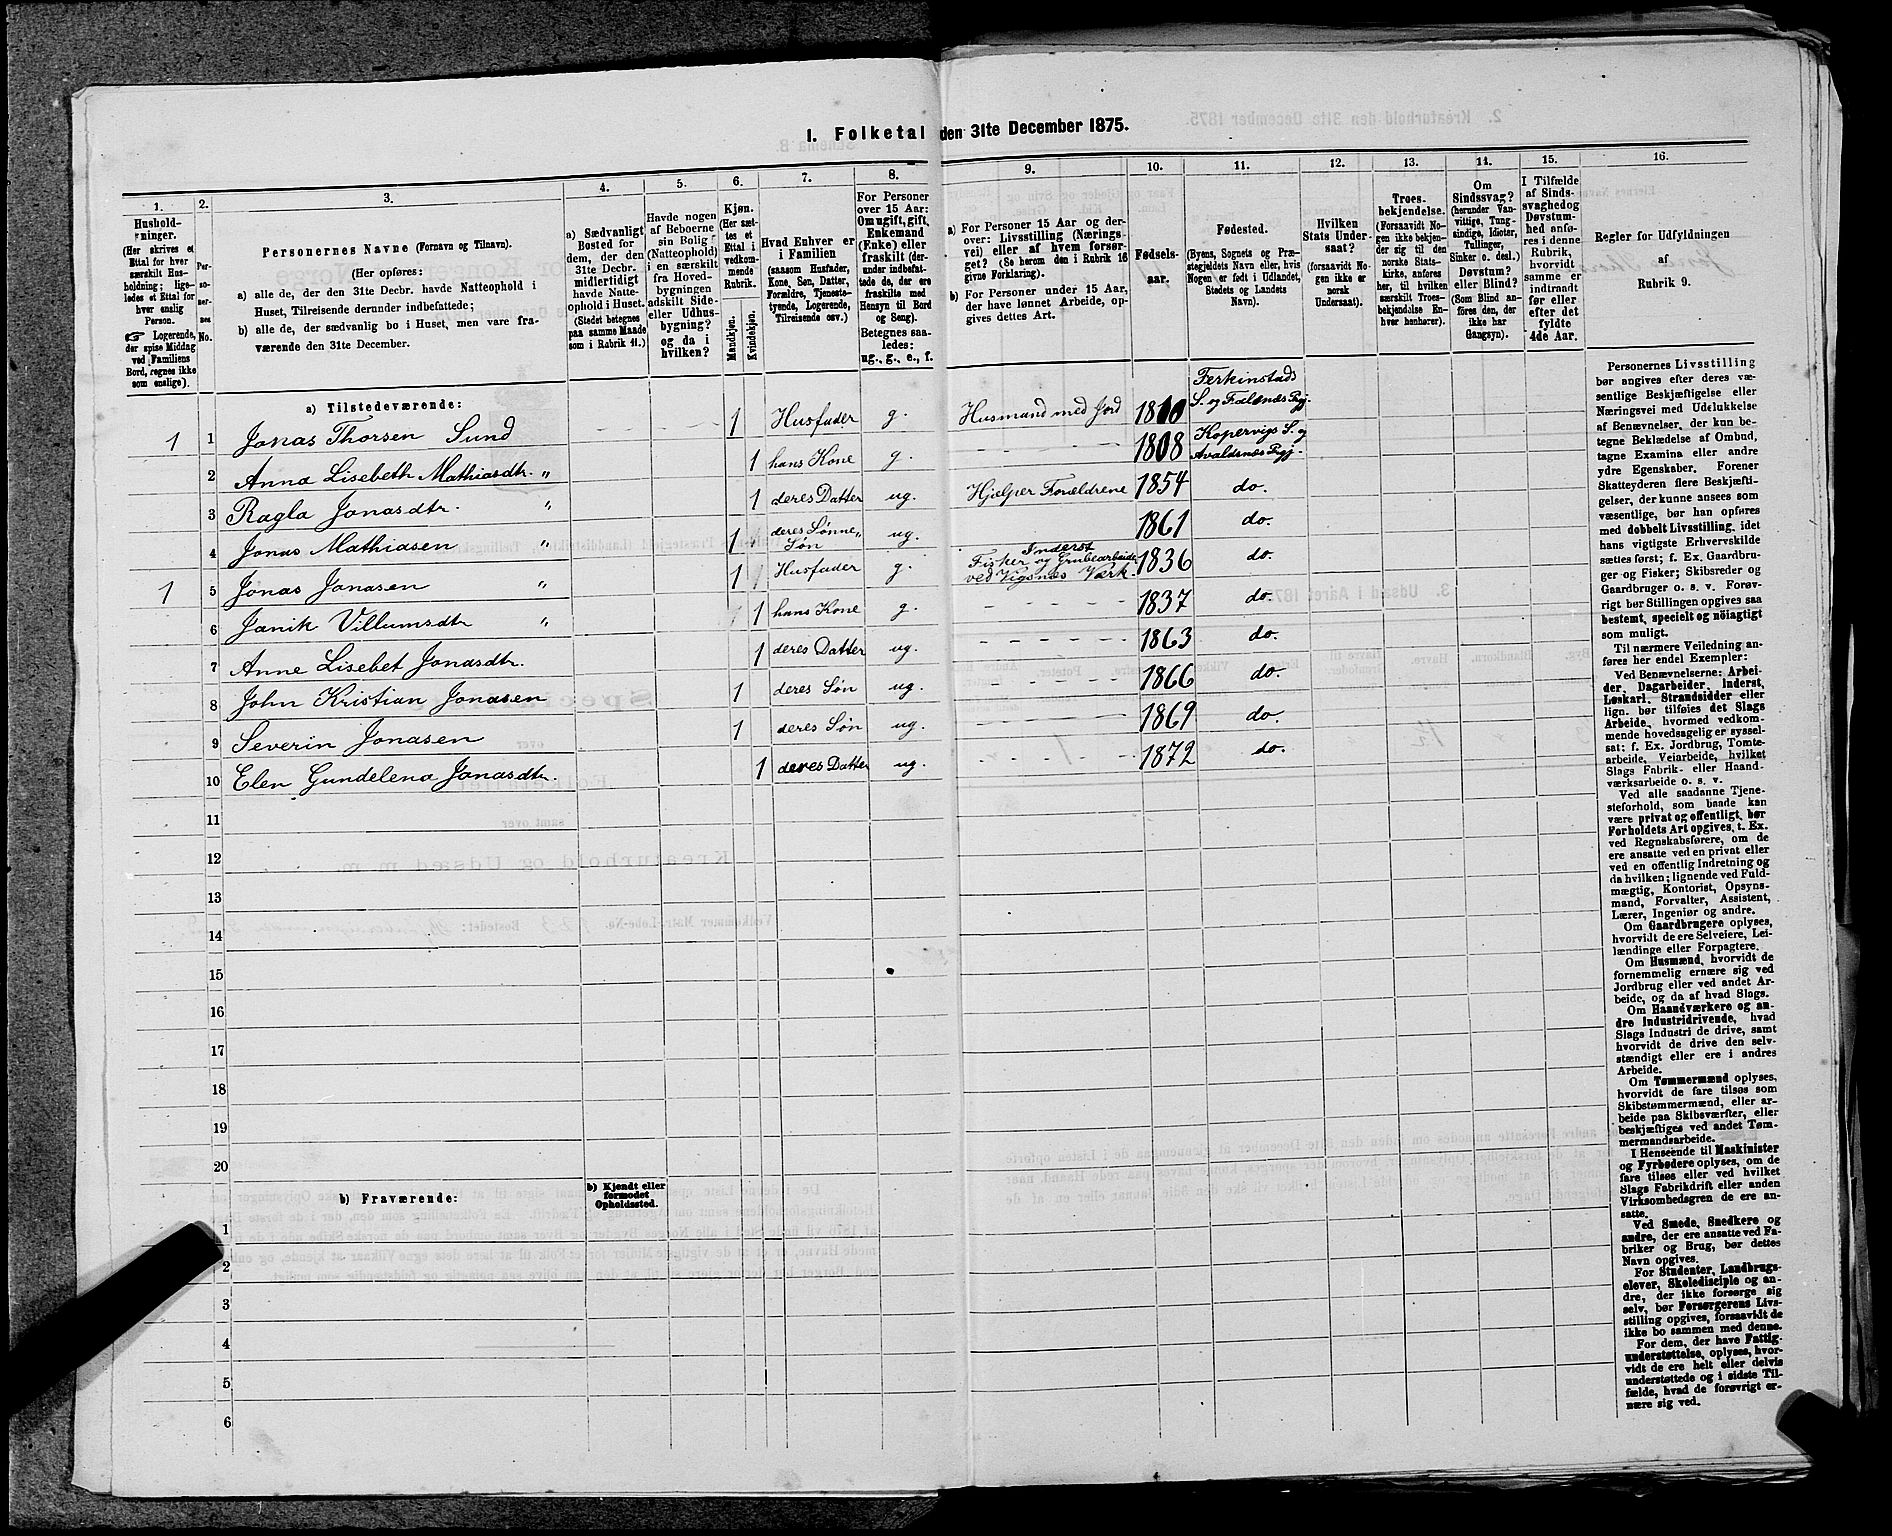 1. Folketal den 31te December 1875.
1. 2. 3. 4. 5. 6. 7. 8. 9. 10. 11. 12. 13. 14. 15. 16.
Hushold-
ninger.
(Her skrives et
Ettal for hver
særskilt Hus-
holdning; lige-
ledes et Ettal for
hver enslig
Person.
☞ Logerende,
der spise Middag
ved Familiens
Bord, regnes ikke
som enslige).
Per-
so-
ner-
nes
No.
Personernes Navne (Fornavn og Tilnavn).
(Her opføres:
a) alle de, der den 31te Decbr. havde Natteophold i
Huset, Tilreisende derunder indbefattede;
b) alle de, der sædvanlig bo i Huset, men vare fra-
værende den 31te December.
a) Sædvanligt
Bosted for
dem, der den
31te Decbr.
midlertidigt
havde Natte-
ophold i Huset.
(Stedet betegnes
paa samme Maade
som i Rubrik 11.)
Havde nogen
af Beboerne
sin Bolig
(Natteophold)
i en særskilt
fra Hoved-
bygningen
adskilt Side-
eller Udhus-
bygning?
og da i
hvilken?
Kjøn.
(Her sæt-
tes et
Ettal i
vedkom-
mende
Rubrik.
Mandkjøn.
Kvindekjøn.
Hvad Enhver er
i Familien
(saasom Husfader,
Kone, Søn, Datter,
Forældre, Tjeneste-
tyende, Logerende,
Tilreisende osv.)
For Personer
over 15 Aar:
Om ugift, gift,
Enkemand
(Enke) eller
fraskilt (der-
under indbefat-
tede de, der ere
fraskilte med
Hensyn til Bord
og Seng).
Betegnes saa-
ledes:
ug., g., e., f.
a) For Personer 15 Aar og der-
over: Livsstilling (Nærings-
vei) eller af hvem forsør-
get? (Se herom den i Rubrik 16
givne Forklaring).
b) For Personer under 15 Aar,
der have lønnet Arbeide, op-
gives dettes Art.
Fødsels-
aar.
Fødested.
(Byens, Sognets og Præ-
stegjeldets Navn eller, hvis
Nogen er født i Udlandet,
Stedets og Landets
Navn).
Hvilken
Stats Under-
saat?
(forsaavidt No-
gen ikke er
norsk
Undersaat).
Troes-
bekjendelse.
(Forsaavidt No-
gen ikke bekjen-
der sig til den
norske Stats-
kirke, anføres
her, til hvilken
særskilt Troes-
bekjendelse En-
hver henhører).
Om
Sindssvag?
(herunder Van-
vittige, Tung-
sindige, Idioter,
Tullinger,
Sinker o. desl.)
Døvstum?
eller Blind?
(Som Blind an-
føres den, der
ikke har
Gangsyn).
I Tilfælde
af Sinds-
svaghed og
Døvstum-
hed anfø-
res i denne
Rubrik,
hvorvidt
samme er
indtraadt
før eller
efter det
fyldte
4de Aar.
Regler for Udfyldningen
af
Rubrik 9.
a) Tilstedeværende:
1 1 Jonas Thorsen Sund 1 Husfader g. Husmand med Jord 1810 Ferkinstads S. og Præg.
2 Anna Lisebeth Mathiasdtr. „ 1 hans Kone g. 1808 Kopervigs S. og Avaldsnæs Pgj.
3 Ragla Jonasdtr. „ 1 deres Datter ug. Hjelper Forældrene 1854 do.
4 Jonas Mathiasen „ 1 deres Sønne-Søn ug. 1861 do.
1 5 Jonas Jonasen „ 1 Husfader g. Inderst Fisker og Grubearbeider ved Vigsnæs Værk. 1836 do.
6 Janik Villumsdtr „ 1 hans Kone g. 1837 do.
7 Anne Lisebet Jonasdtr. 1 deres Datter ug. 1863 do.
8 John Kristian Jonasen 1 deres Søn ug. 1866 do.
9 Severin Jonasen 1 deres Søn ug. 1869 do.
10 Elen Gundelena Jonasdtr. 1 deres Datter ug. 1872 do.
11
12
13
14
15
16
17
18
19
20
b) Fraværende:
b) Kjendt eller
formodet
Opholdssted.
1
2
3
4
5
6
Personernes Livsstilling
bør angives efter deres væ-
sentlige Beskjæftigelse eller
Næringsvei med Udelukkelse
af Benævnelser, der kun be-
tegne Beklædelse af Ombud,
tagne Examina eller andre
ydre Egenskaber. Forener
Skatteyderen flere Beskjæfti-
gelser, der kunne ansees som
væsentlige, bør han opføres
med dobbelt Livsstilling, idet
hans vigtigste Erhvervskilde
sættes først; f. Ex. Gaardbru-
ger og Fisker; Skibsreder og
Gaardbruger o. s. v. Forøv-
rigt bør Stillingen opgives saa
bestemt, specielt og nöiagtigt
som muligt.
Til nærmere Veiledning an-
føres her endel Exempler:
Ved Benævnelserne: Arbei-
der, Dagarbeider, Inderst,
Løskarl, Strandsidder eller
lign. bør tilføies det Slags
Arbeide, hvormed vedkom-
mende hovedsagelig er syssel-
sat: f. Ex. Jordbrug, Tomte-
arbeide, Veiarbeide, hvilket
Slags Fabrik- eller Haand-
værksarbeide o. s. v.
Ved alle saadanne Tjene-
steforhold, som baade kan
være privat og offentligt, bør
Forholdets Art opgives, t. Ex.
ved Regnskabsførere, om de
ere ansatte ved en privat eller
ved en offentlig Indretning og
da hvilken; lignende ved Fuld-
mægtig, Kontorist, Opsyns-
mand, Forvalter, Assistent,
Lærer, Ingeniør og andre.
Om Gaardbrugere oplyses,
hvorvidt de ere Selveiere, Lei-
lændinge eller Forpagtere.
Om Husmænd, hvorvidt de
fornemmelig ernære sig ved
Jordbrug eller ved andet Ar-
beide, og da af hvad Slags.
Om Haandværkere og an-
dre Industridrivende, hvad
Slags Industri de drive, samt
hvorvidt de drive den selv-
stændigt eller ere i andres
Arbeide.
Om Tømmermænd oplyses,
hvorvidt de fare tilsøs som
Skibstømmermænd, eller ar-
beide paa Skibsværfter, eller
beskjæftiges ved andet Tøm-
mermandsarbeide.
I Henseende til Maskinister
og Fyrbødere oplyses, om de
fare tilsøs eller ved hvilket
Slags Fabrikdrift eller anden
Virksomhedsgren de ere an-
satte.
Ved Smede, Snedkere og
andre, der ere ansatte ved Fa-
briker og Brug, bør dettes
Navn opgives.
For Studenter, Landbrugs-
elever, Skoledisciple og an-
dre, der ikke forsørge sig
selv, bør Forsørgerens Livs-
stilling opgives, forsaavidt de
ikke bo sammen med denne.
For dem, der have Fattig-
understøttelse, oplyses, hvor-
vidt de ere helt eller delvis
understøttede og i sidste Til-
fælde, hvad de forøvrigt er-
nære sig ved.